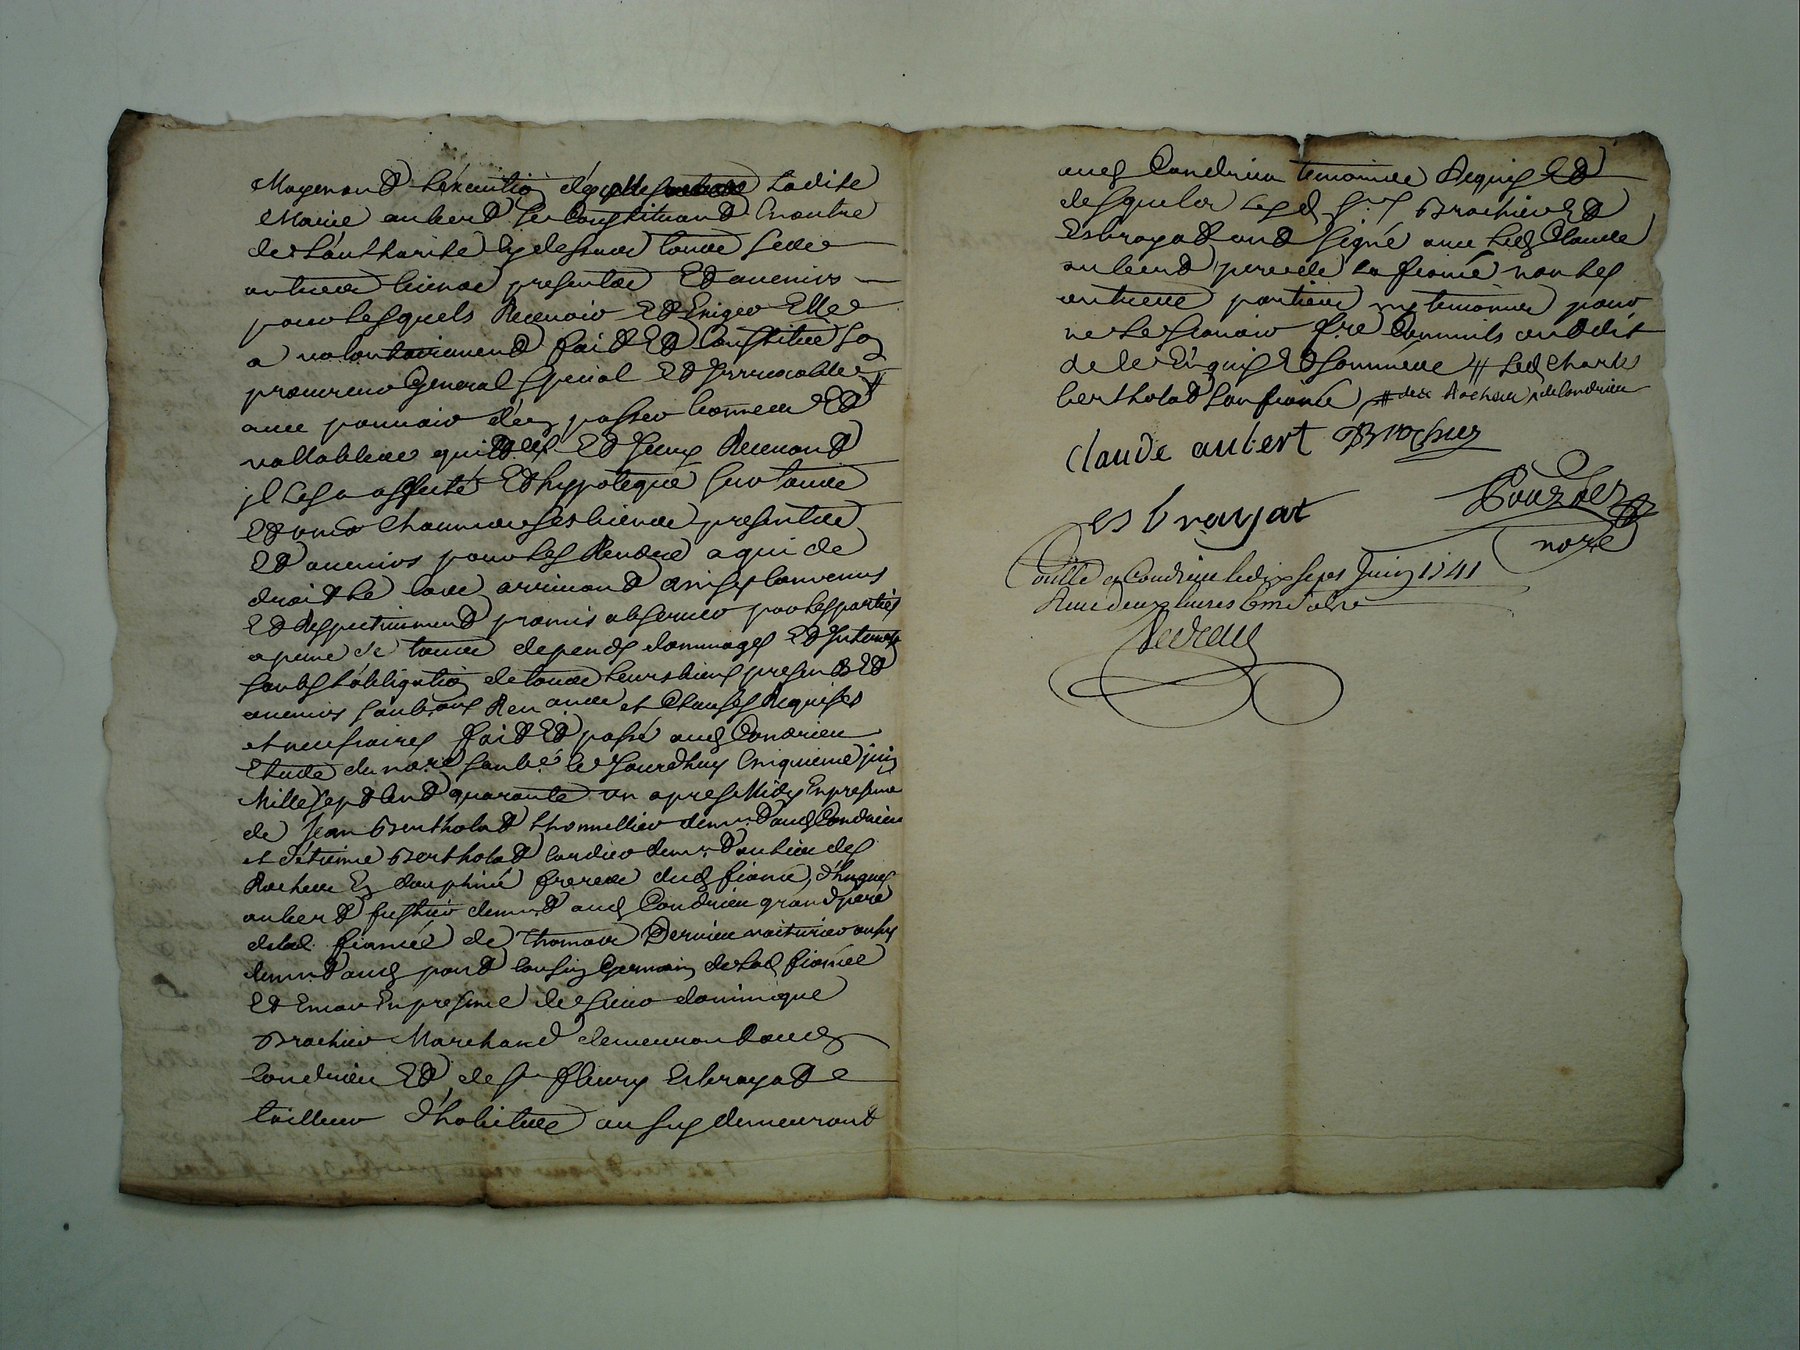 Moyenand Lexecution desquelles ladite
Marie aubert se Constituand En outre
de Lautharité Cy dessus tous ses
autres biens presents Et avenirs
pour lesquels Recevoir Et Exiger Elle
a volontairement fait Et Constitué son
procureur General special Et Irrevocable
avec pouvoir d'en passer bonnes Et
vallables quittces Et Iceux Recevand
Il les a affecté Et hypotequé sur tous
Et uns Chacuns ses biens presents
Et avenirs pour les Rendre a qui de
droit le cas arrivand Ainsy Convenus
Et Respectivement promis observer par les parties
a peine de tous depends dommages Et Interests
soubs Lobligation de tous leurs biens presents Et
avenirs soubons Renonces et Clauses Requises
et necessaires fait Et passé aud Condrieu
Etude du nore soubné le jourdhuy Cinquieme juin
Mille sept Cend quarante un apres Midy En presence
de Jean Bertholat thonnellier demt aud Condrieu
et d'etienne Bertholat cordier demt au lieu des
Roches En dauphiné freres dud fiancé, d'hugues
aubert fustier demt aud Condrieu grand pere
de lad fiancée de Thomas Dervieu voiturier aussy
demt aud Cousin Germain de lad fiancée
Et Encor En presence de sieur dominique
Brochier Marchand demeurant aud
Condrieu Et de sr fleury Esbrayat
tailleur d'habits aussy demeurant
aud Condrieu temoins Requis Et
desquels Lesd srs Brochier Et
Esbrayat ont signé avec led Claude
aubert pere de la fiancée non les
autres parties ny temoins pour
ne le scavoir fre Comme ils ont dit
de ce Enquis Et sommés # Led Charles
bertholat Son fiancé # des Roches de Condrieu
Claude aubert Brochier
esbrayat
nore
Conllé a Condrieu le dix sept Juin 1741
Receu deux livres